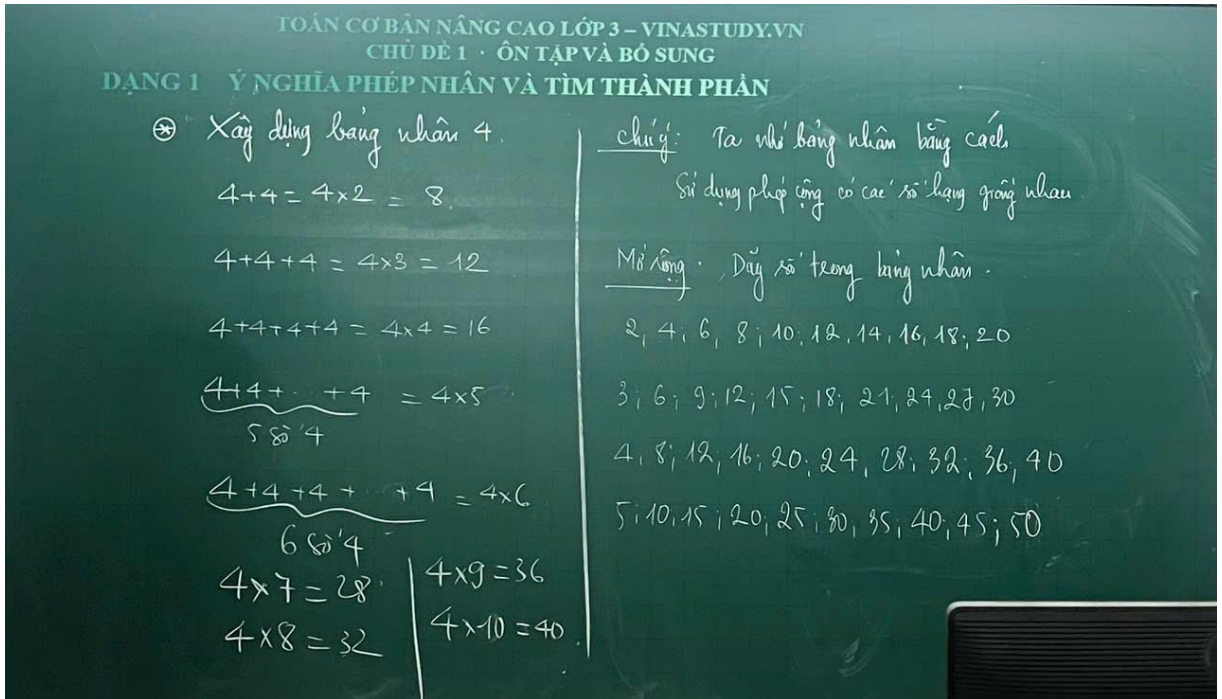 TOÁN CƠ BẢN NÂNG CAO LỚP 3 – VINASTUDY.VN
CHỦ ĐỀ 1 · ÔN TẬP VÀ BỔ SUNG
DẠNG 1 Ý NGHĨA PHÉP NHÂN VÀ TÌM THÀNH PHẦN
⊛ Xây dựng bảng nhân 4.
4+4 = 4×2 = 8.
4+4+4 = 4×3 = 12
4+4+4+4 = 4×4 = 16
4+4+...+4 = 4×5
5 số 4
4+4+4+...+4 = 4×6
6 số 4
4×7 = 28
4×8 = 32
4×9 = 36
4×10 = 40
Chú ý: Ta nhớ bảng nhân bằng cách
Sử dụng phép cộng có các số hạng giống nhau
Mở rộng. Dãy số trong bảng nhân.
2, 4; 6, 8; 10; 12, 14, 16, 18; 20
3; 6; 9; 12; 15; 18; 21; 24, 27, 30
4, 8; 12, 16; 20; 24, 28; 32; 36, 40
5; 10; 15; 20; 25; 30, 35, 40; 45; 50